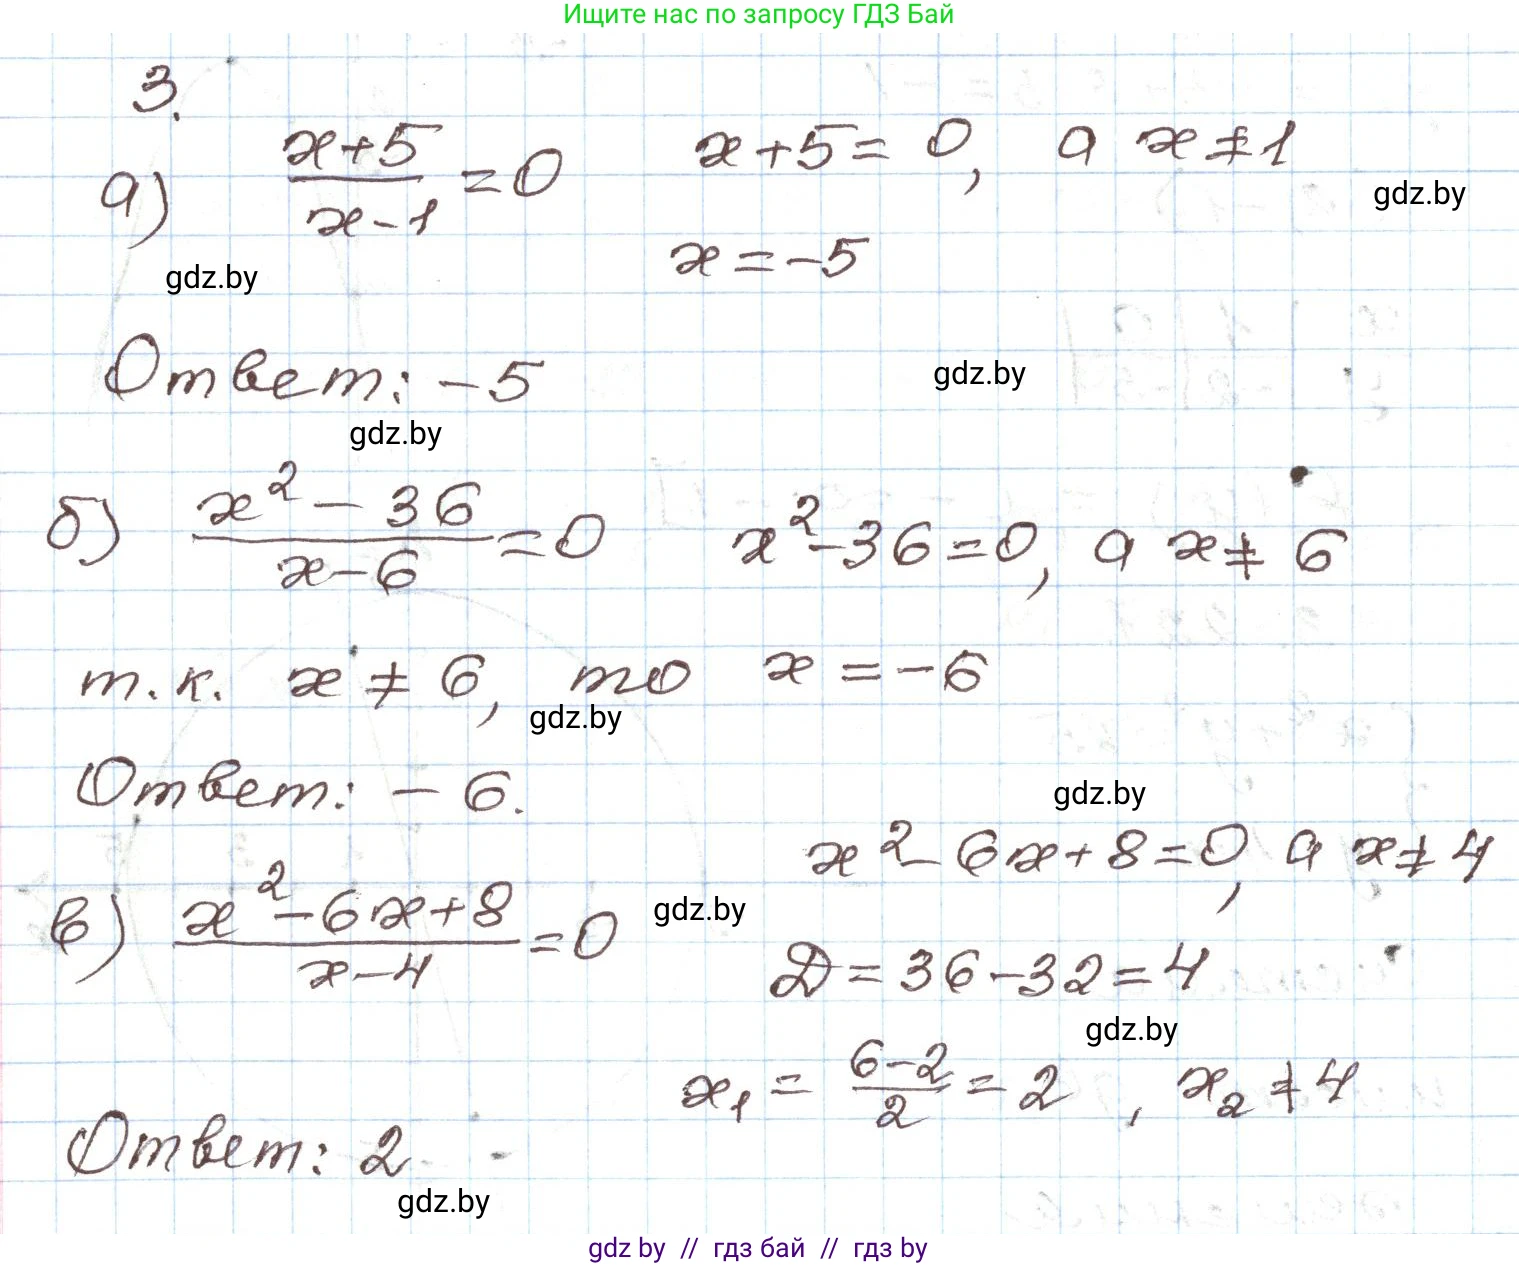 Ищите нас по запросу ГДЗ Бай
3.
а) (x+5)/(x-1) = 0    x+5 = 0, а x ≠ 1
gdz.by
gdz.by
x = -5
Ответ: -5
gdz.by
gdz.by
б) (x² - 36)/(x-6) = 0    x² - 36 = 0, а x ≠ 6
т.к. x ≠ 6, то x = -6
gdz.by
Ответ: -6.
gdz.by
x² - 6x + 8 = 0, а x ≠ 4
в) (x² - 6x + 8)/(x-4) = 0
gdz.by
D = 36 - 32 = 4
gdz.by
x₁ = (6-2)/2 = 2, x₂ ≠ 4
Ответ: 2
gdz.by
gdz by // гдз бай // гдз by